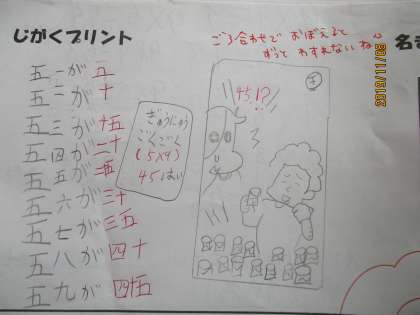 じがくプリント
ごろ合わせで おぼえると
ずっと わすれないね
名
2019/11/09
五一が五
五二が十
五三が十五
五四が二十
五五が二五
五六が三十
五七が三五
五八が四十
五九が四五
ぎゅうにゅう
ごくごく
(5×9)
45はい
45!?